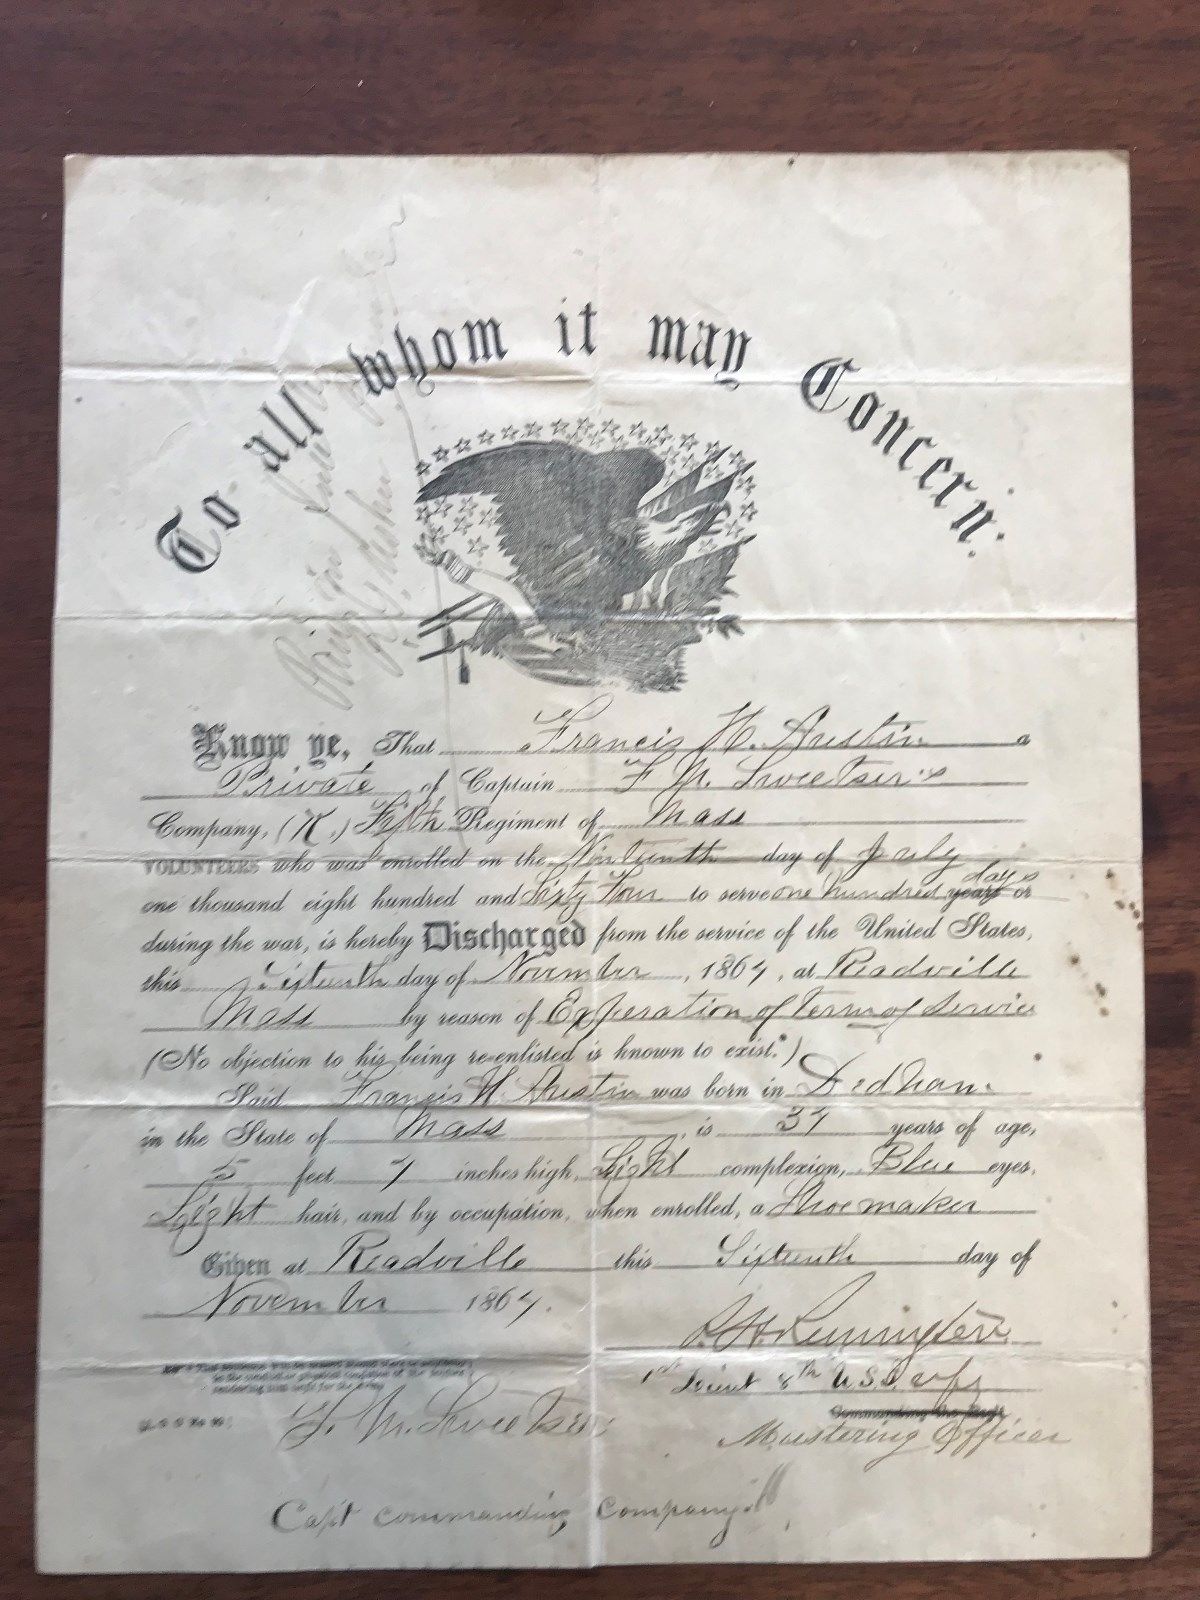 To all whom it may Concern:
Know ye, That Francis H. Austin a
Private of Captain F M. Sweetser's
Company, (K.) Fifth Regiment of Mass
VOLUNTEERS who was enrolled on the Nineteenth day of July
one thousand eight hundred and Sixty Four to serve one hundred years days or
during the war, is hereby Discharged from the service of the United States,
this Sixteenth day of November, 1864, at Readville
Mass by reason of Experation of term of service
(No objection to his being re-enlisted is known to exist.*)
Said Francis H Austin was born in Dedham
in the State of Mass, is years of age,
5 feet 7 inches high, Light complexion, Blue eyes,
Light hair, and by occupation, when enrolled, a Shoemaker
Given at Readville this Sixteenth day of
November 1864.
Remington
1st Lieut 8th U.S.
Commanding the Reg't
Mustering Officer
F. M. Sweetser
Capt commanding company